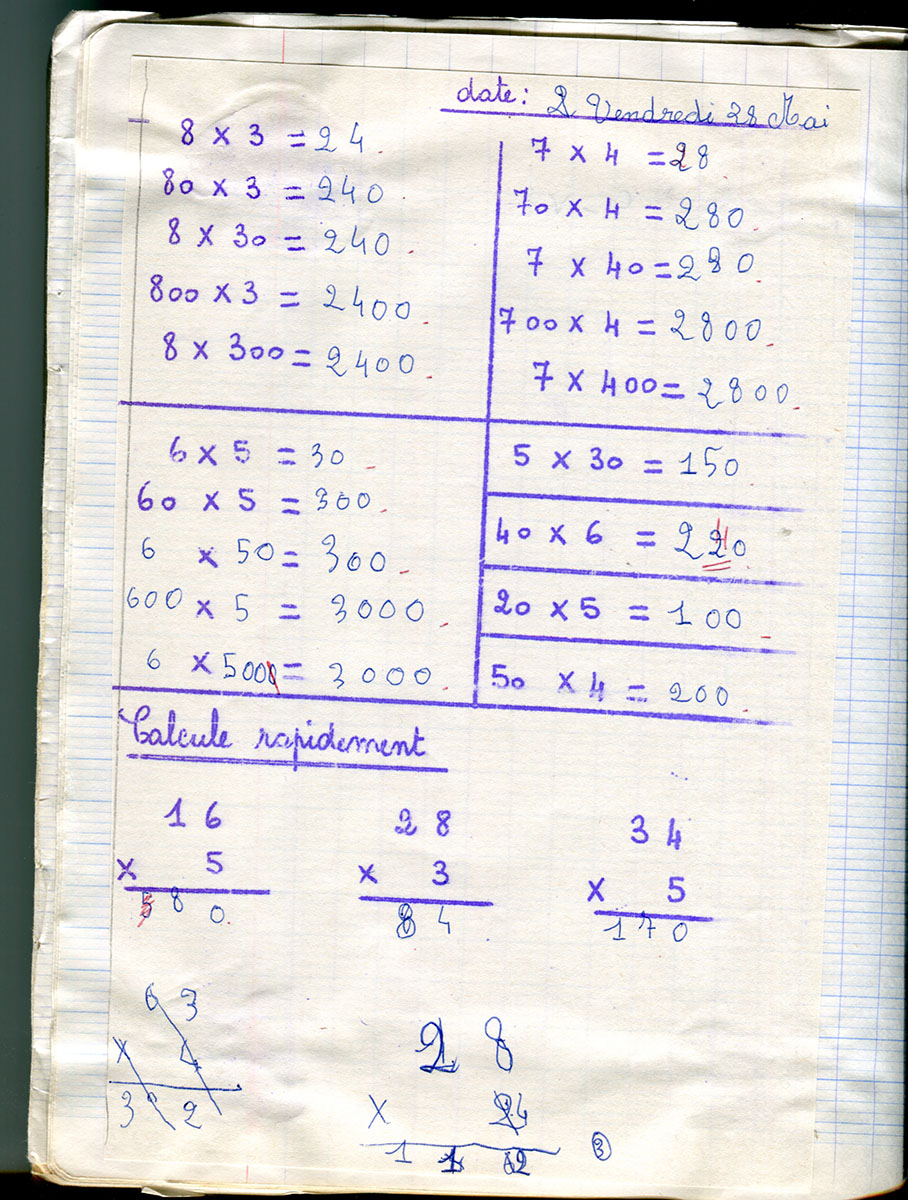 date: Vendredi 28 Mai
8 x 3 = 24
80 x 3 = 240
8 x 30 = 240
800 x 3 = 2400
8 x 300 = 2400
7 x 4 = 28
70 x 4 = 280
7 x 40 = 280
700 x 4 = 2800
7 x 400 = 2800
6 x 5 = 30
60 x 5 = 300
6 x 50 = 300
600 x 5 = 3000
6 x 500 = 3000
5 x 30 = 150
40 x 6 = 240
20 x 5 = 100
50 x 4 = 200
Calcule rapidement
16
x 5
80
28
x 3
84
34
x 5
170
63
x 4
3 2
28
x 4
112
3